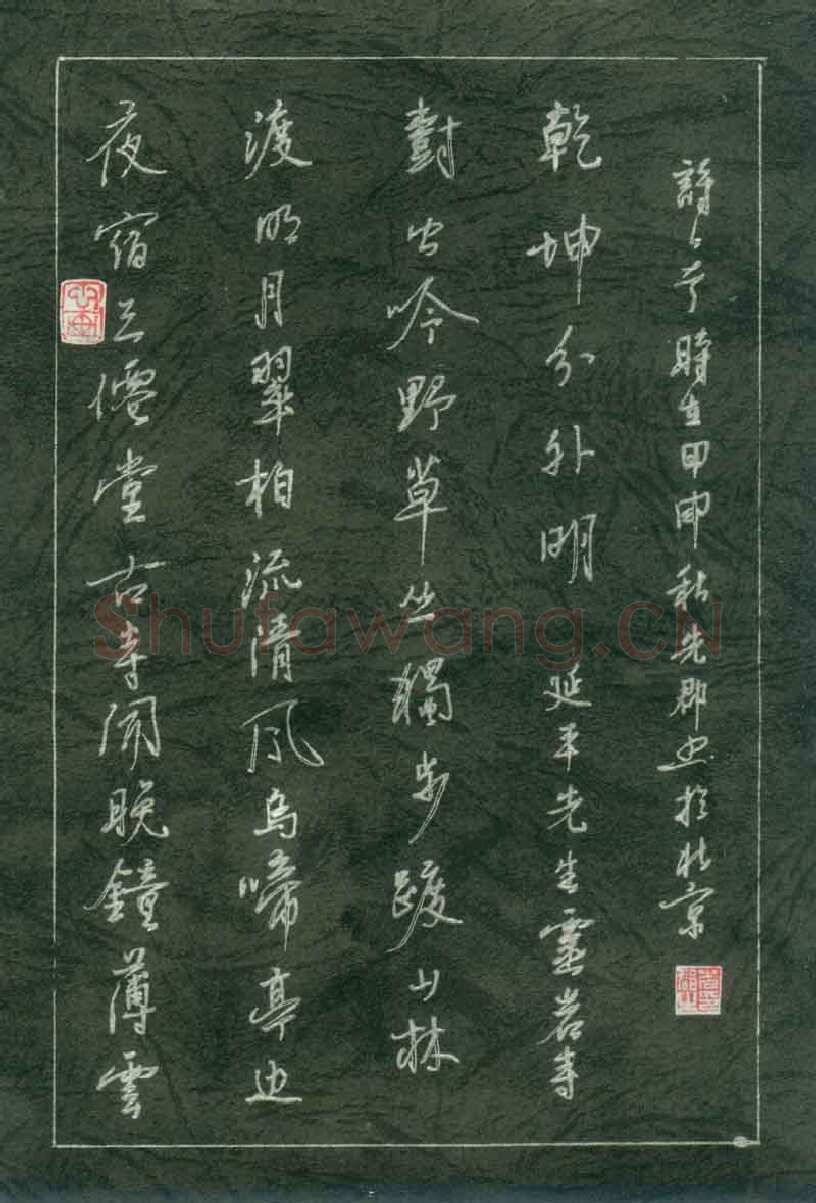 夜宿云僊堂古寺闻晚鐘薄雲
渡明月翠柏流清风烏啼亭边
對虫吟野草丛獨步踱山林
乾坤分外明 延平先生靈岩寺
詩一首時在甲申秋先郡书於北京
Shufawang.CN